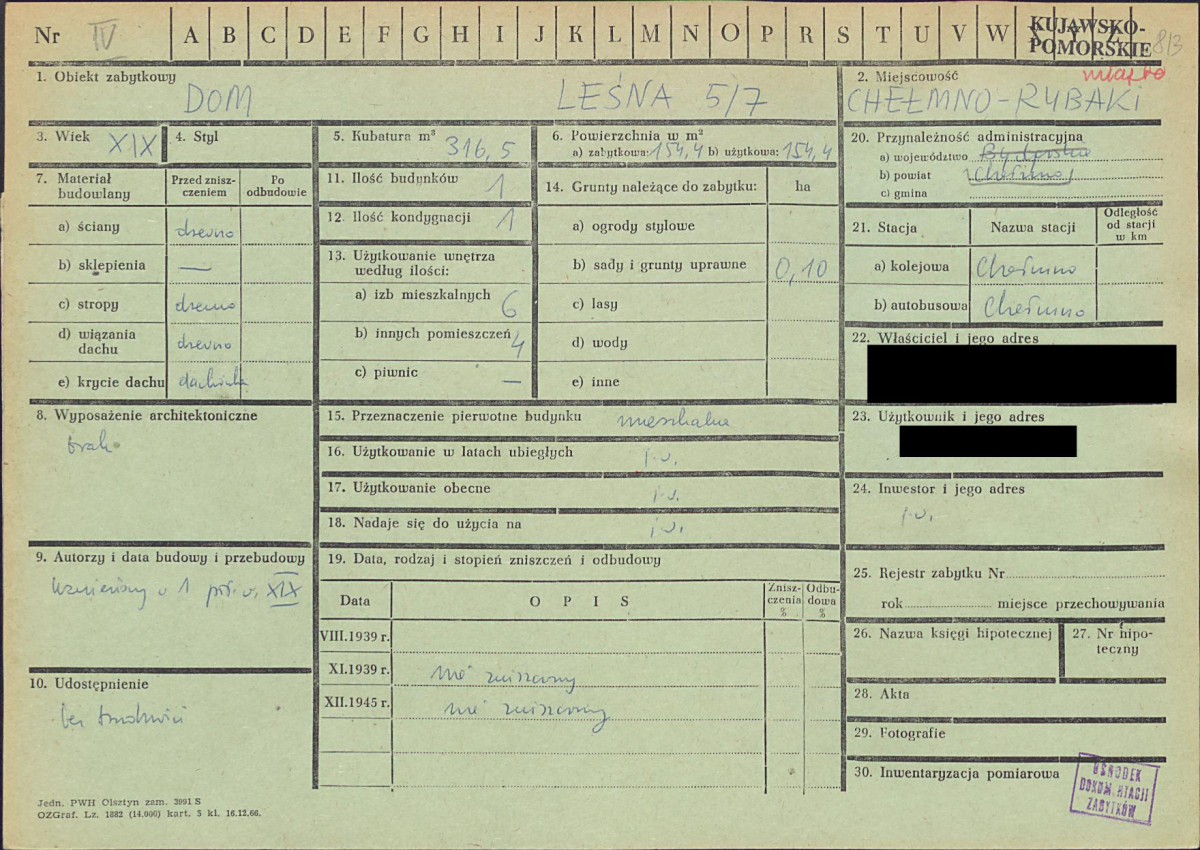 Nr IV A B C D E F G H I J K L M N O P R S T U V W Z
KUJAWSKO-
POMORSKIE
813
1. Obiekt zabytkowy
DOM LEŚNA 5/7
2. Miejscowość miasto
CHEŁMNO-RYBAKI
3. Wiek XIX
4. Styl
5. Kubatura m³ 316,5
6. Powierzchnia w m²
a) zabytkowa: 154,4 b) użytkowa: 154,4
7. Materiał budowlany
Przed znisz-
czeniem
Po
odbudowie
a) ściany drewno
b) sklepienia —
c) stropy drewno
d) wiązania
dachu drewno
e) krycie dachu dachówka
8. Wyposażenie architektoniczne
brak
9. Autorzy i data budowy i przebudowy
wzniesiony w 1 poł. w. XIX
10. Udostępnienie
bez trudności
11. Ilość budynków 1
12. Ilość kondygnacji 1
13. Użytkowanie wnętrza
według ilości:
a) izb mieszkalnych 6
b) innych pomieszczeń 4
c) piwnic —
14. Grunty należące do zabytku: ha
a) ogrody stylowe
b) sady i grunty uprawne 0,10
c) lasy
d) wody
e) inne
15. Przeznaczenie pierwotne budynku mieszkalne
16. Użytkowanie w latach ubiegłych j.w.
17. Użytkowanie obecne j.w.
18. Nadaje się do użycia na j.w.
19. Data, rodzaj i stopień zniszczeń i odbudowy
Data OPIS
Znisz-
czenia
%
Odbu-
dowa
%
VIII.1939 r.
XI.1939 r. nie zniszczony
XII.1945 r. nie zniszczony
20. Przynależność administracyjna
a) województwo Bydgoskie
b) powiat Chełmno
c) gmina
21. Stacja Nazwa stacji
Odległość
od stacji
w km
a) kolejowa Chełmno
b) autobusowa Chełmno
22. Właściciel i jego adres
23. Użytkownik i jego adres
24. Inwestor i jego adres
j.w.
25. Rejestr zabytku Nr
rok miejsce przechowywania
26. Nazwa księgi hipotecznej
27. Nr hipo-
teczny
28. Akta
29. Fotografie
30. Inwentaryzacja pomiarowa
OŚRODEK
DOKUMENTACJI
ZABYTKÓW
Jedn. PWH Olsztyn zam. 3991 S
OZGraf. Lz. 1882 (14.000) kart. 5 kl. 16.12.66.